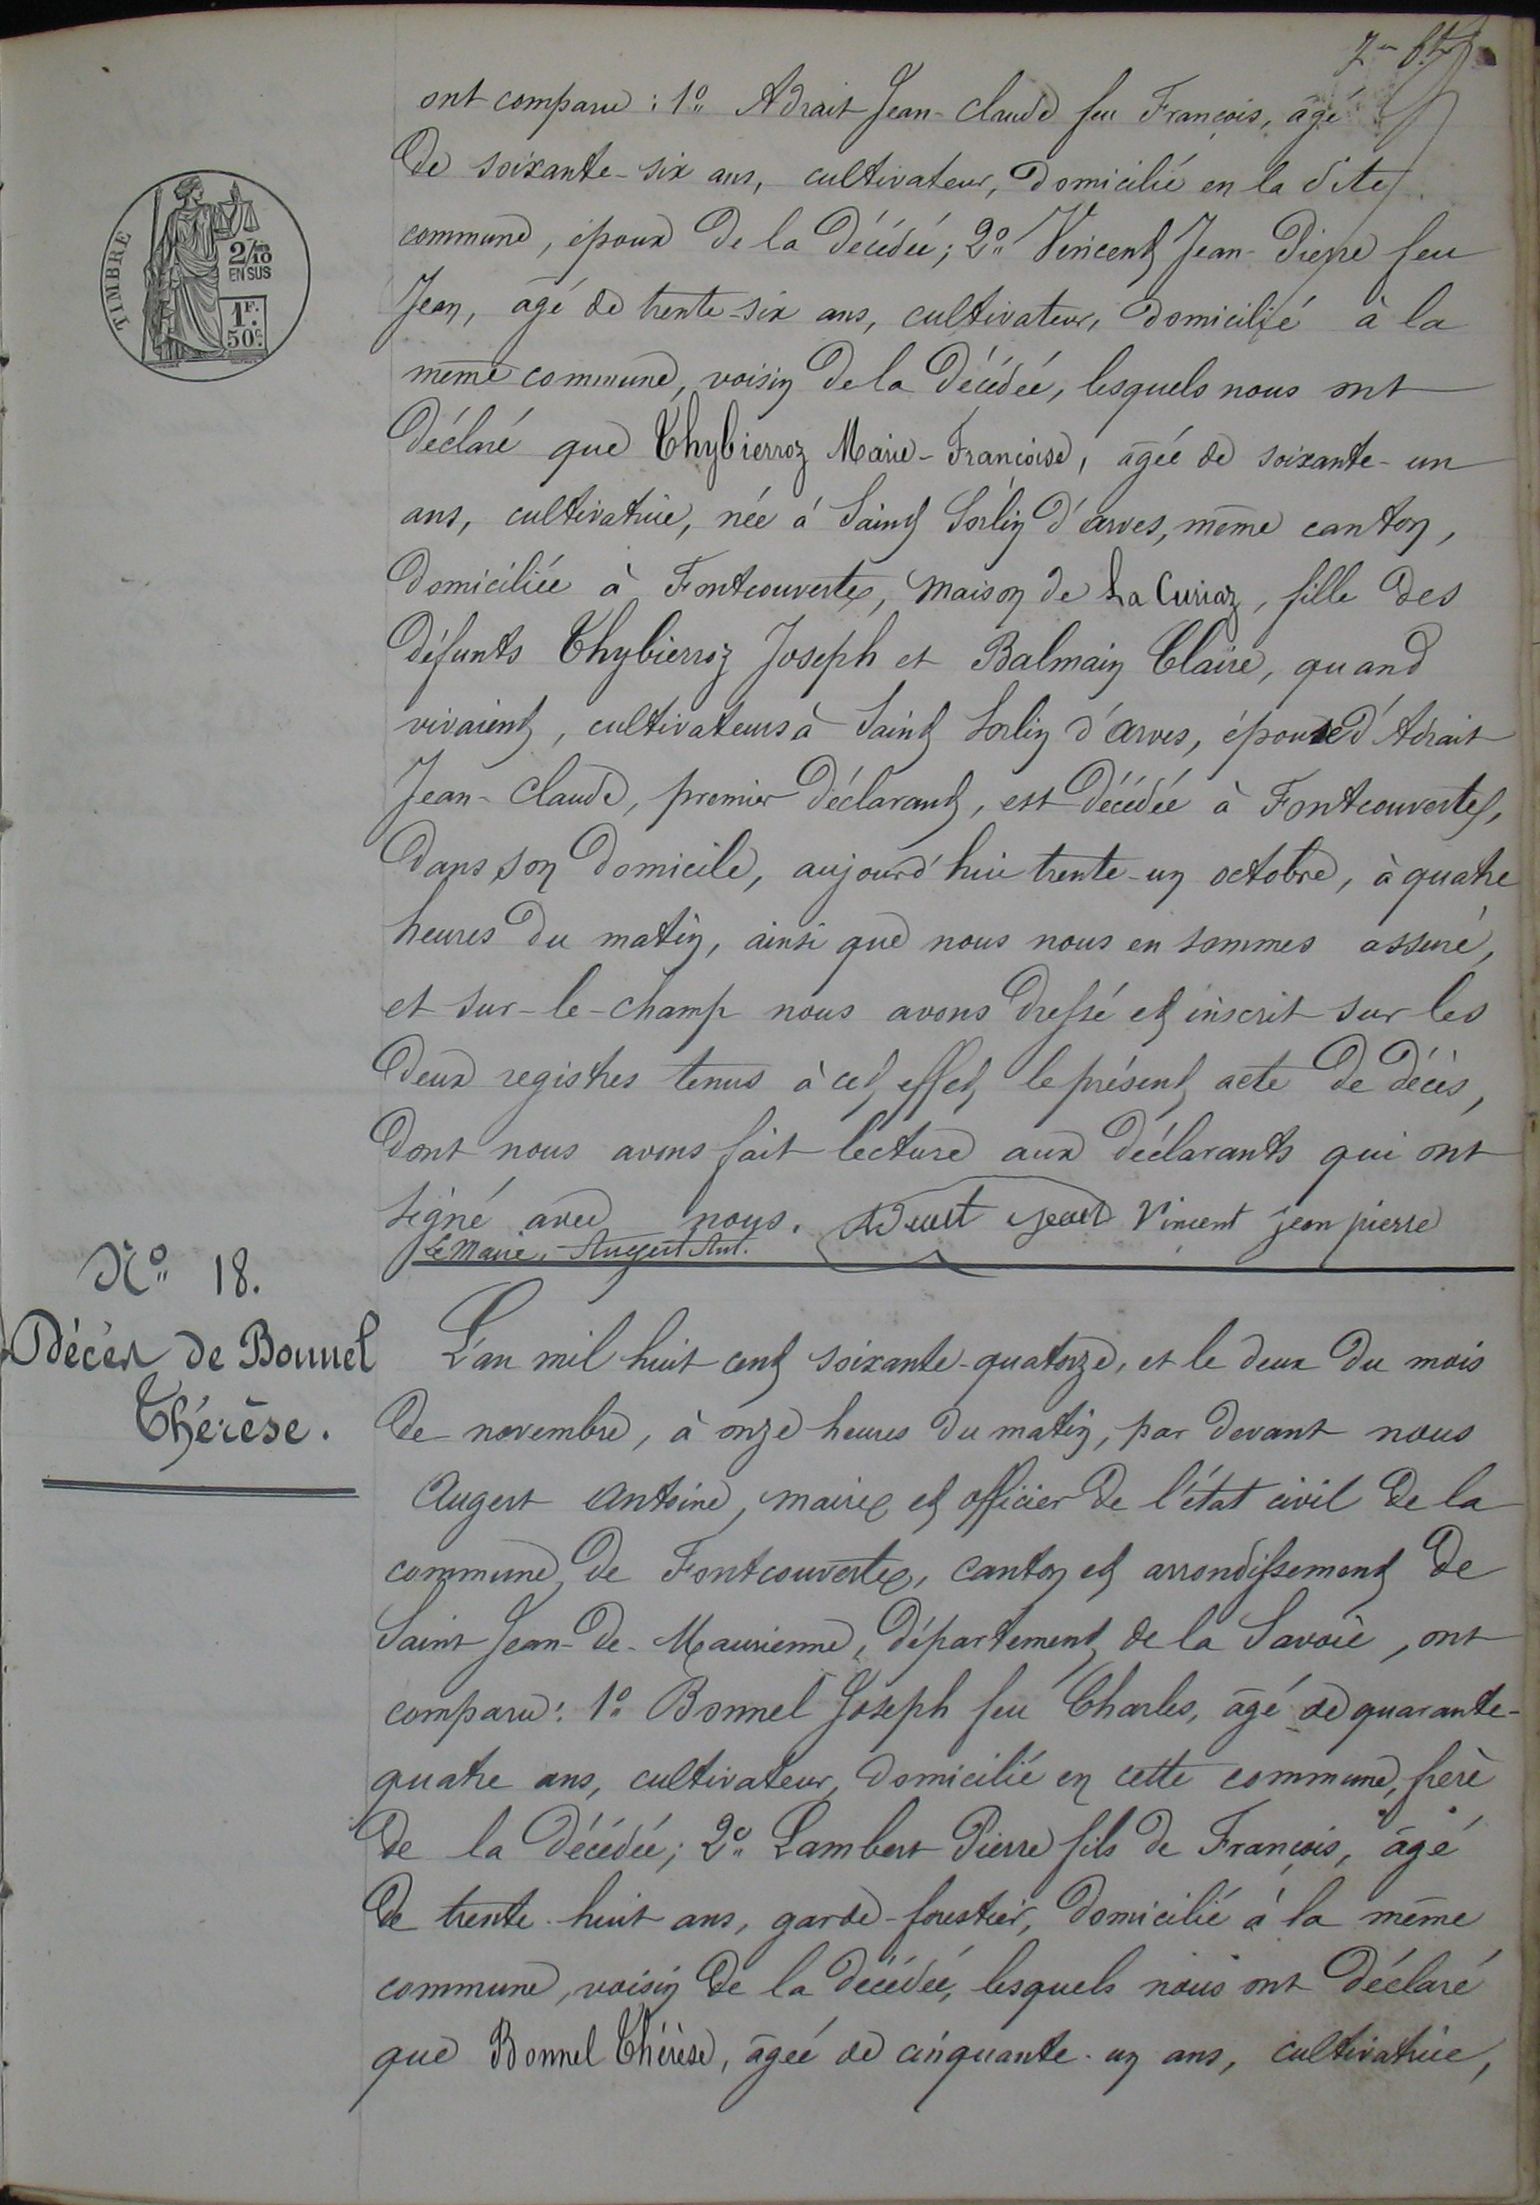 ont comparu : 1o Adrait Jean-Claude feu François, âgé
de soixante-six ans, cultivateur, domicilié en la dite
commune, époux de la décédée; 2o Vincent Jean-Pierre feu
Jean, âgé de trente-six ans, cultivateur, domicilié à la
même commune, voisin de la décédée, lesquels nous ont
déclaré que Thybierroz Marie-Françoise, âgée de soixante-un
ans, cultivatrice, née à Saint Sorlin d'arves, même canton,
domiciliée à Fontcouverte, maison de La Curiaz, fille des
défunts Thybierroz Joseph et Balmain Claire, quand
vivaient, cultivateurs à Saint Sorlin d'arves, épouse d'Adrait
Jean-Claude, premier déclarant, est décédée à Fontcouverte,
dans son domicile, aujourd'hui trente-un octobre, à quatre
heures du matin, ainsi que nous nous en sommes assuré,
et sur-le-champ nous avons dressé et inscrit sur les
deux registres tenus à cet effet, le présent acte de décès,
dont nous avons fait lecture aux déclarants qui ont
signé avec nous. Vincent jean pierre
Le Maire, Augert Ant.
TIMBRE
2/10
EN SUS
1F.
50c
No 18.
Décès de Bonnel
Thérèse.
L'an mil huit cent soixante-quatorze, et le deux du mois
de novembre, à onze heures du matin, par devant nous
Augert Antoine, maire et officier de l'état civil de la
commune de Fontcouverte, canton et arrondissement de
Saint Jean-de-Maurienne, département de la Savoie, ont
comparu : 1o Bonnel Joseph feu Charles, âgé de quarante-
quatre ans, cultivateur, domicilié en cette commune, frère
de la décédée; 2o Lambert Pierre fils de François, âgé
de trente-huit ans, garde-forestier, domicilié à la même
commune, voisin de la décédée, lesquels nous ont déclaré
que Bonnel Thérèse, âgée de cinquante-un ans, cultivatrice,